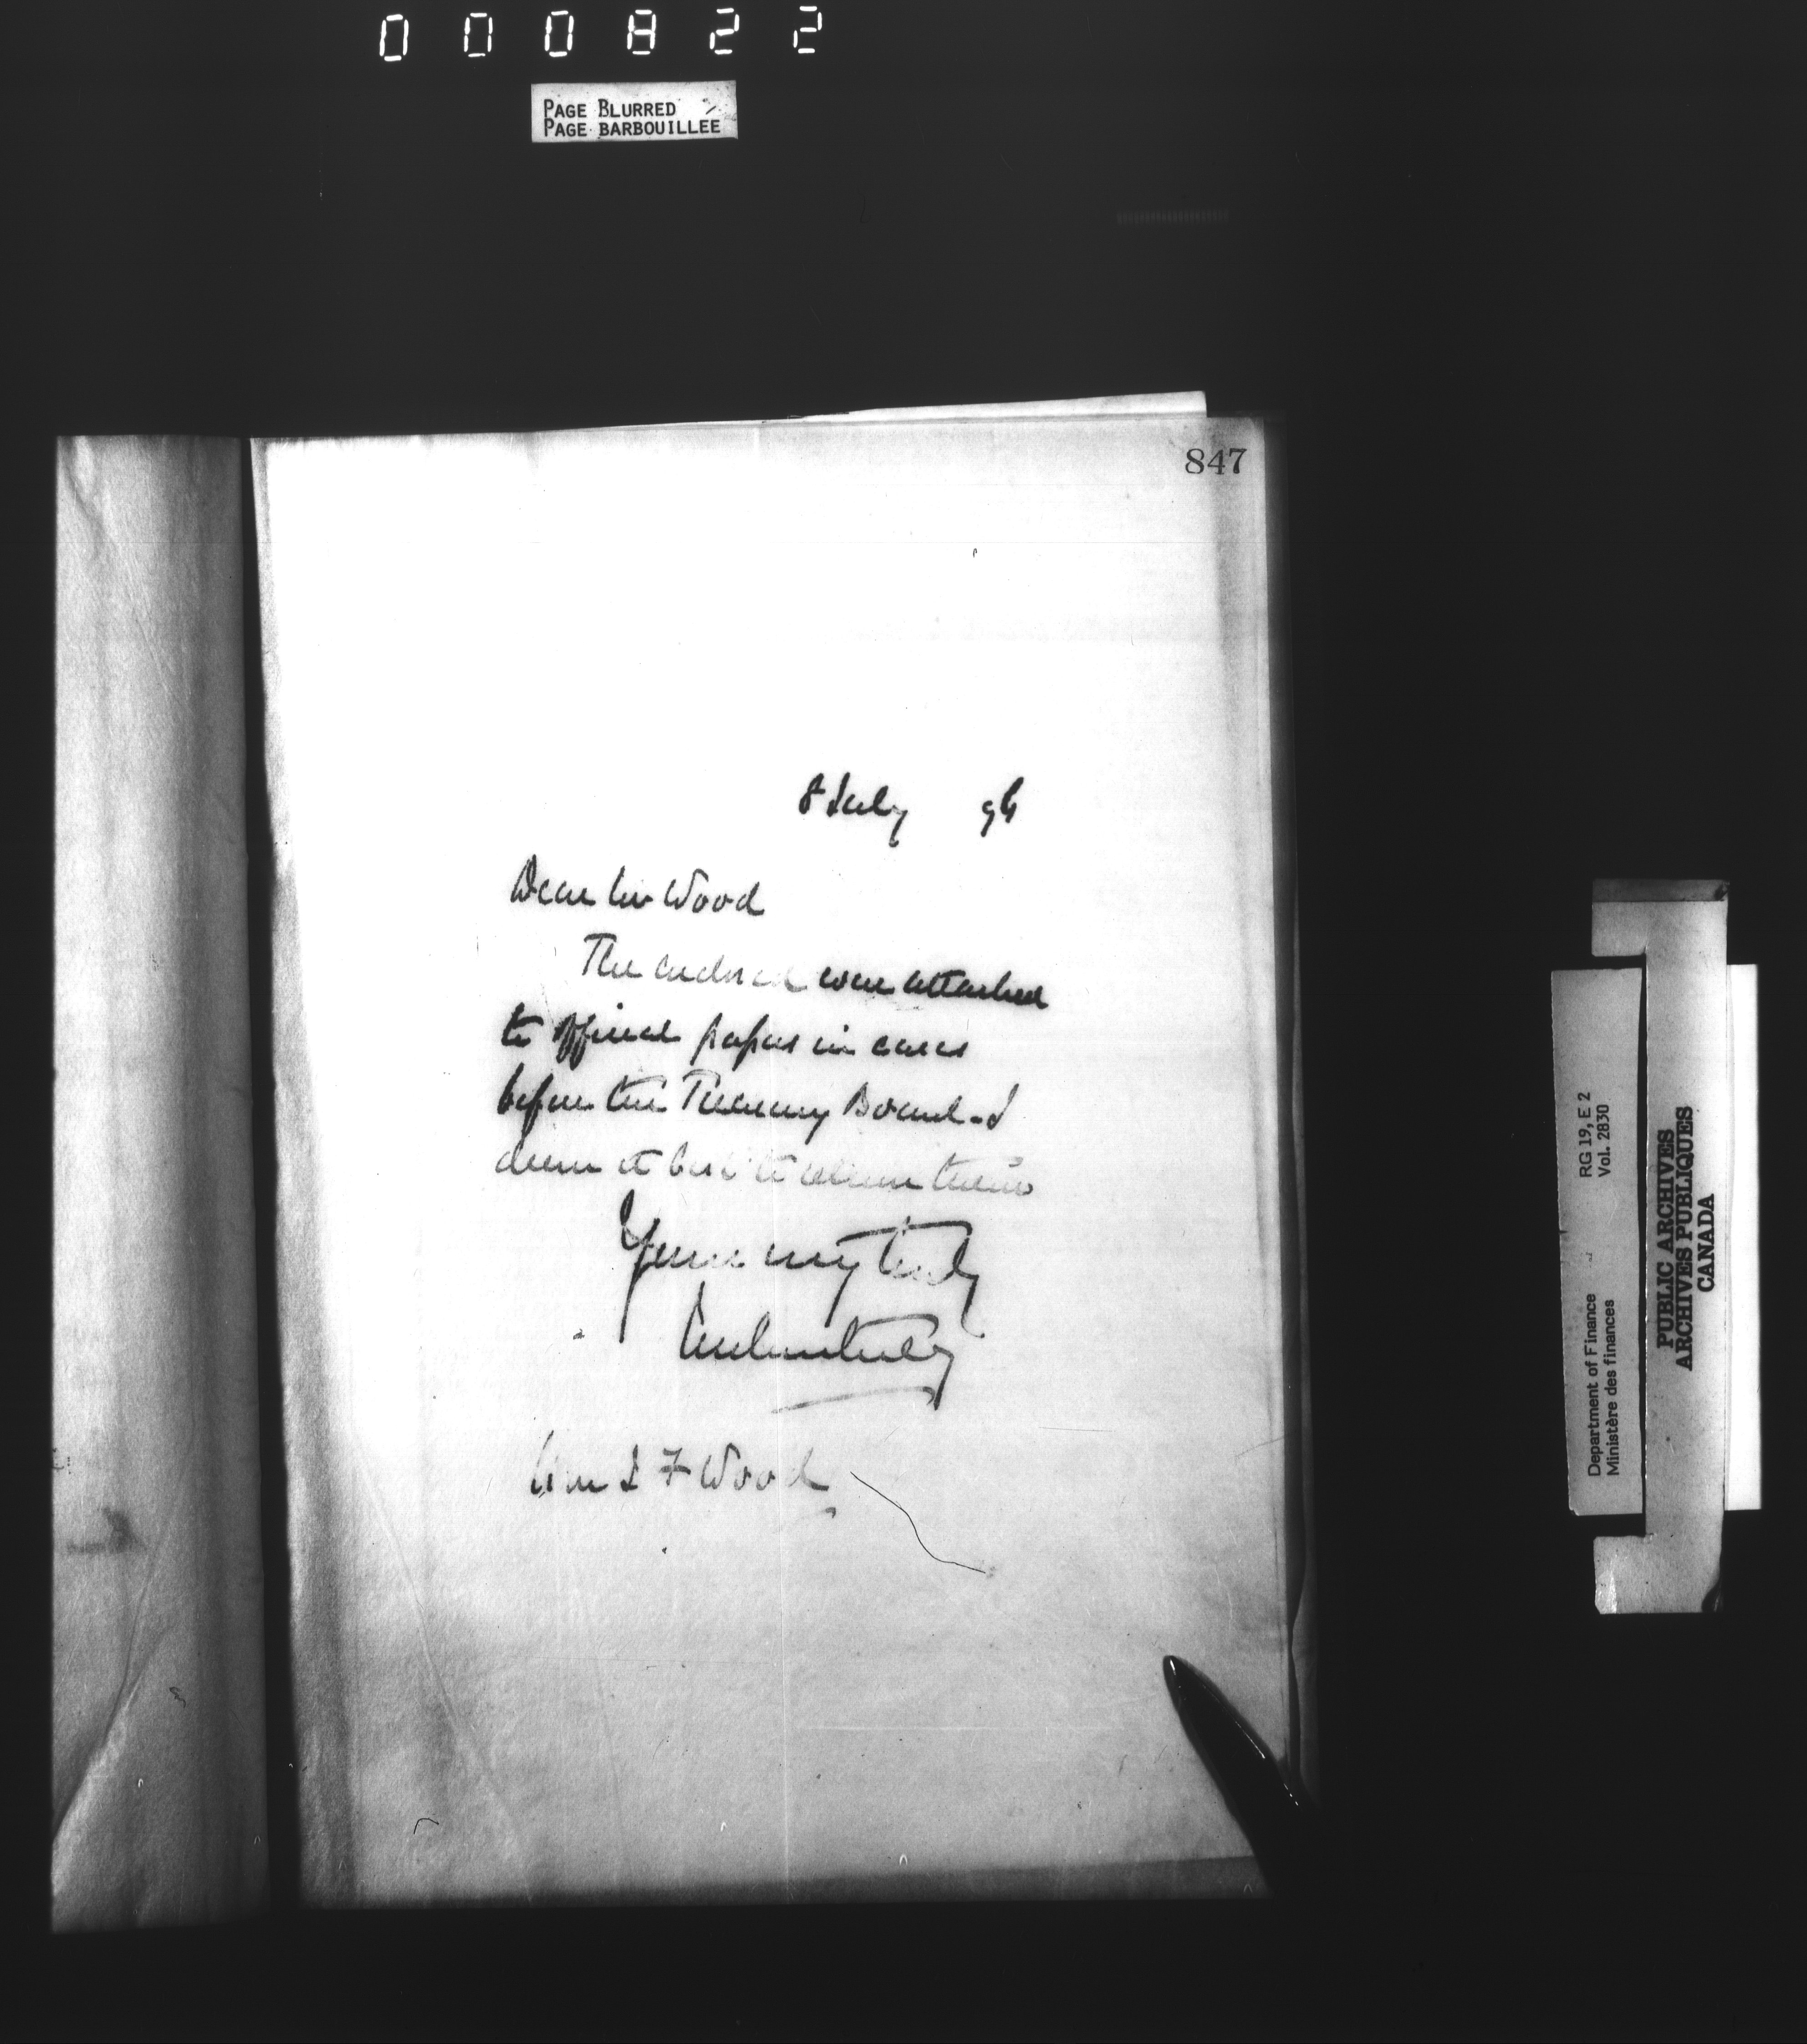 000822
PAGE BLURRED
PAGE BARBOUILLEE
847
8 July 96
Dear Mr Wood
The enclosed were attached
to official papers in cases
before the Treasury Board - I
deem it best to return them
Yours very truly
Hon J F Wood
RG 19, E 2
Vol. 2830
Department of Finance
Ministère des finances
PUBLIC ARCHIVES
ARCHIVES PUBLIQUES
CANADA